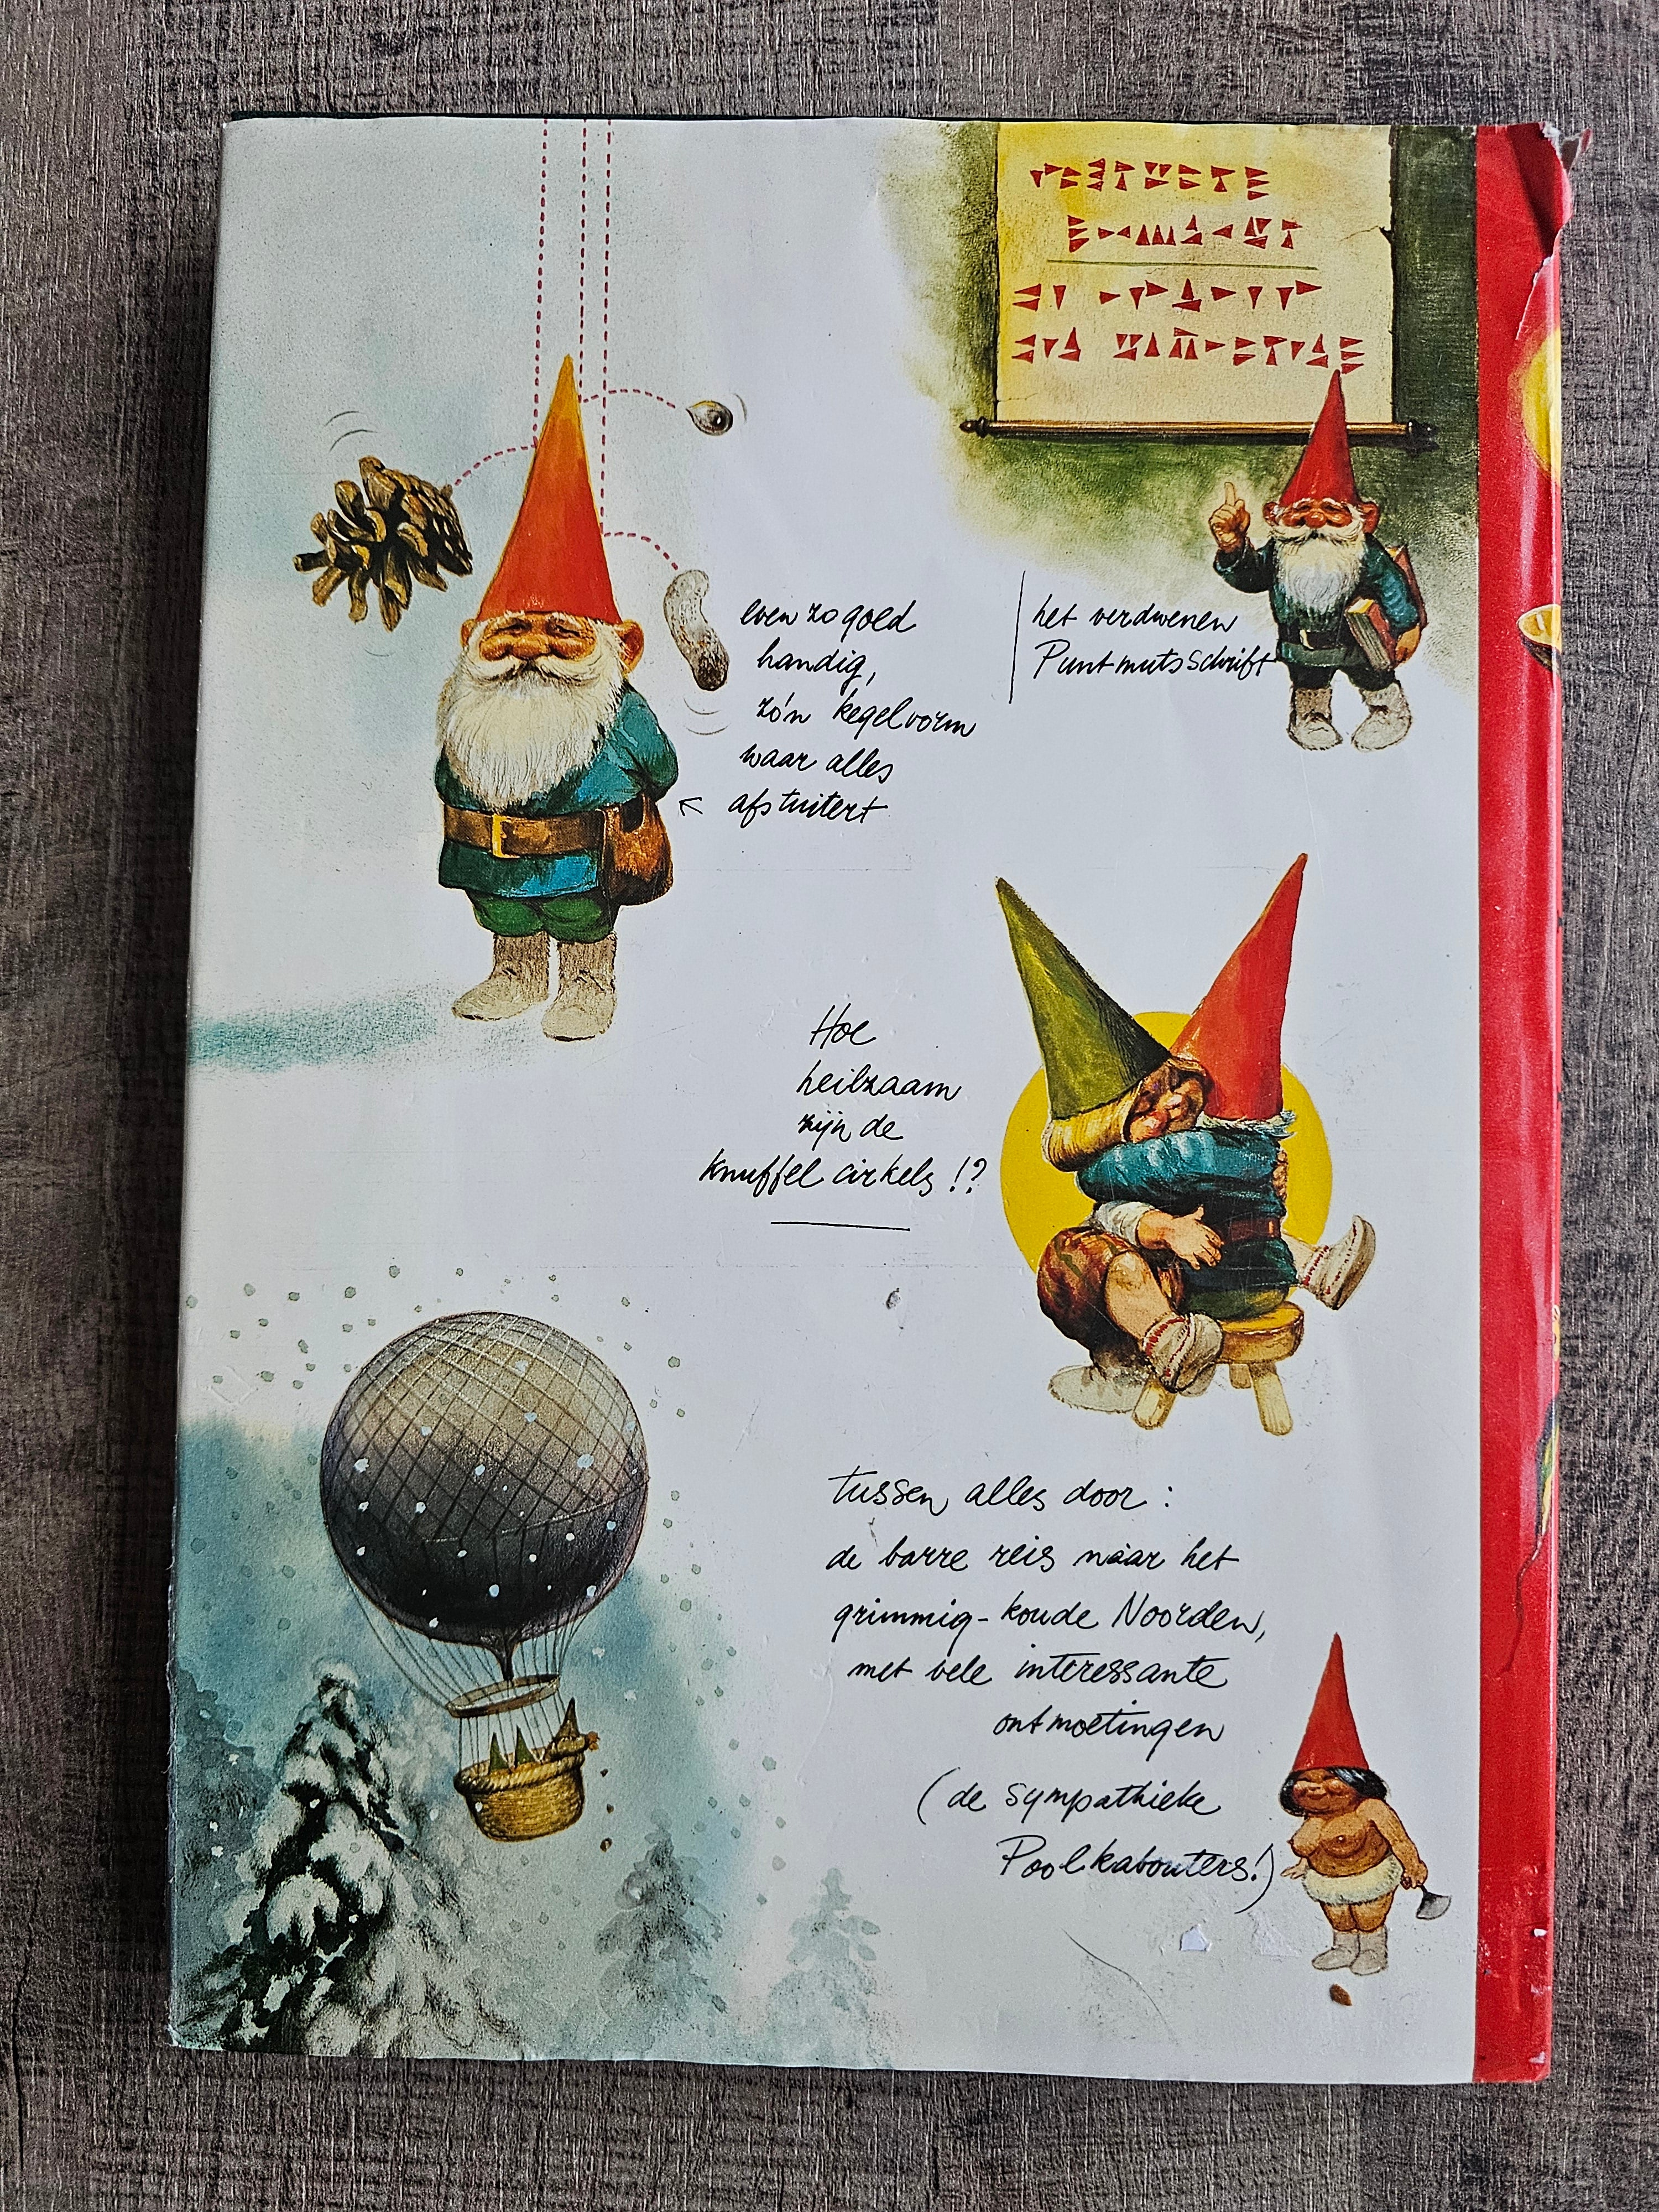 even zo goed
handig,
zó'n kegelvorm
waar alles
afstuitert
het verdwenen
Puntmutsschrift
Hoe
heilzaam
zijn de
knuffelcirkels!?
tussen alles door:
de barre reis náár het
grimmig-koude Noorden,
met vele interessante
ontmoetingen
(de sympathieke
Poolkabouters!)